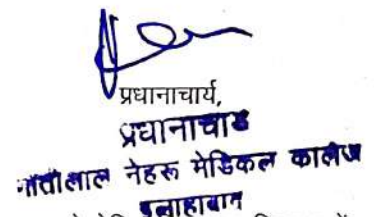 प्रधानाचार्य,
प्रधानाचार्य
मोतीलाल नेहरू मेडिकल कालेज
इलाहाबाद